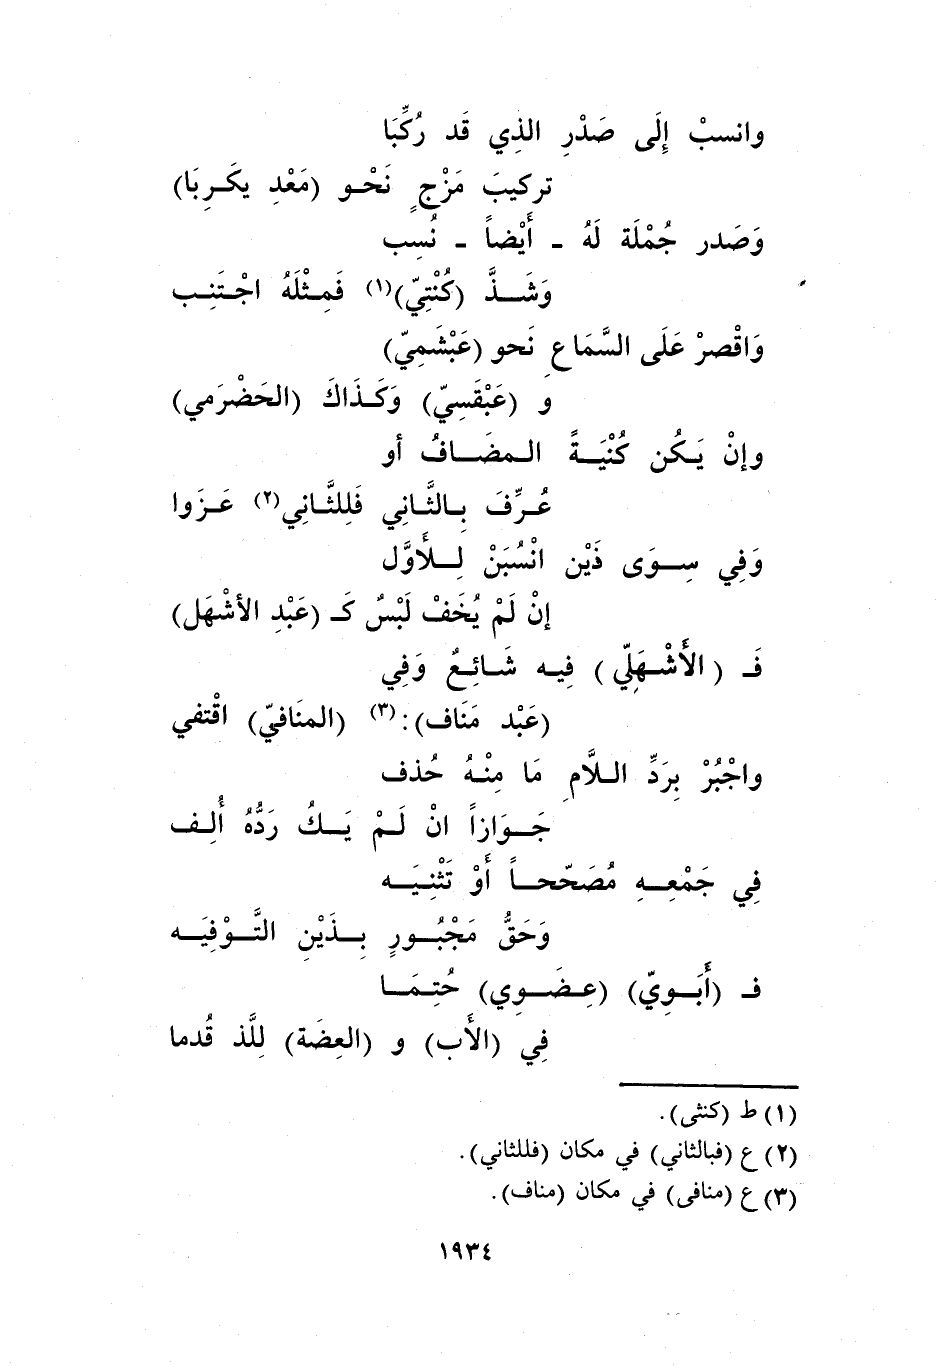 وانسبْ إِلَى صَدْرِ الذِي قَد رُكِّبَا
تركيبَ مَزْجٍ نَحْو (مَعْدِ يكَرِبَا)
وَصَدر جُمْلَة لَهُ - أَيْضاً - نُسِب
وَشَذَّ (كُنْتِيّ)(١) فَمِثْلَهُ اجْتَنِب
وَاقْصرْ عَلَى السَّمَاعِ نَحو (عَبْشَمِيّ)
و (عَبْقَسِيّ) وَكَذَاكَ (الحَضْرَمي)
وإنْ يَكُن كُنْيَةً المضَافُ أو
عُرِّفَ بِالثَّانِي فَلِلثَّانِي(٢) عَزَوا
وَفِي سِوَى ذَيْن انْسُبَنْ لِلأَوَّل
إنْ لَمْ يُخَفْ لَبْسٌ كَـ (عَبْدِ الأشْهَل)
فَـ (الأَشْهَلِيّ) فِيه شَائِعٌ وَفِي
(عَبْد مَنَاف):(٣) (المنَافيّ) اقْتفي
واجْبُرْ بِرَدِّ اللَّامِ مَا مِنْهُ حُذف
جَوَازاً انْ لَمْ يَكُ رَدُّهُ أُلِف
فِي جَمْعِهِ مُصَحّحاً أَوْ تَثْنِيَه
وَحَقُّ مَجْبُورٍ بِذَيْنِ التَّوْفِيَه
فـ (أَبَوِيّ) (عِضَوِي) حُتِمَا
فِي (الأَب) و (العِضَة) لِلَّذ قُدما
(١) ط (كنثى).
(٢) ع (فبالثاني) في مكان (فللثاني).
(٣) ع (منافى) في مكان (مناف).
١٩٣٤